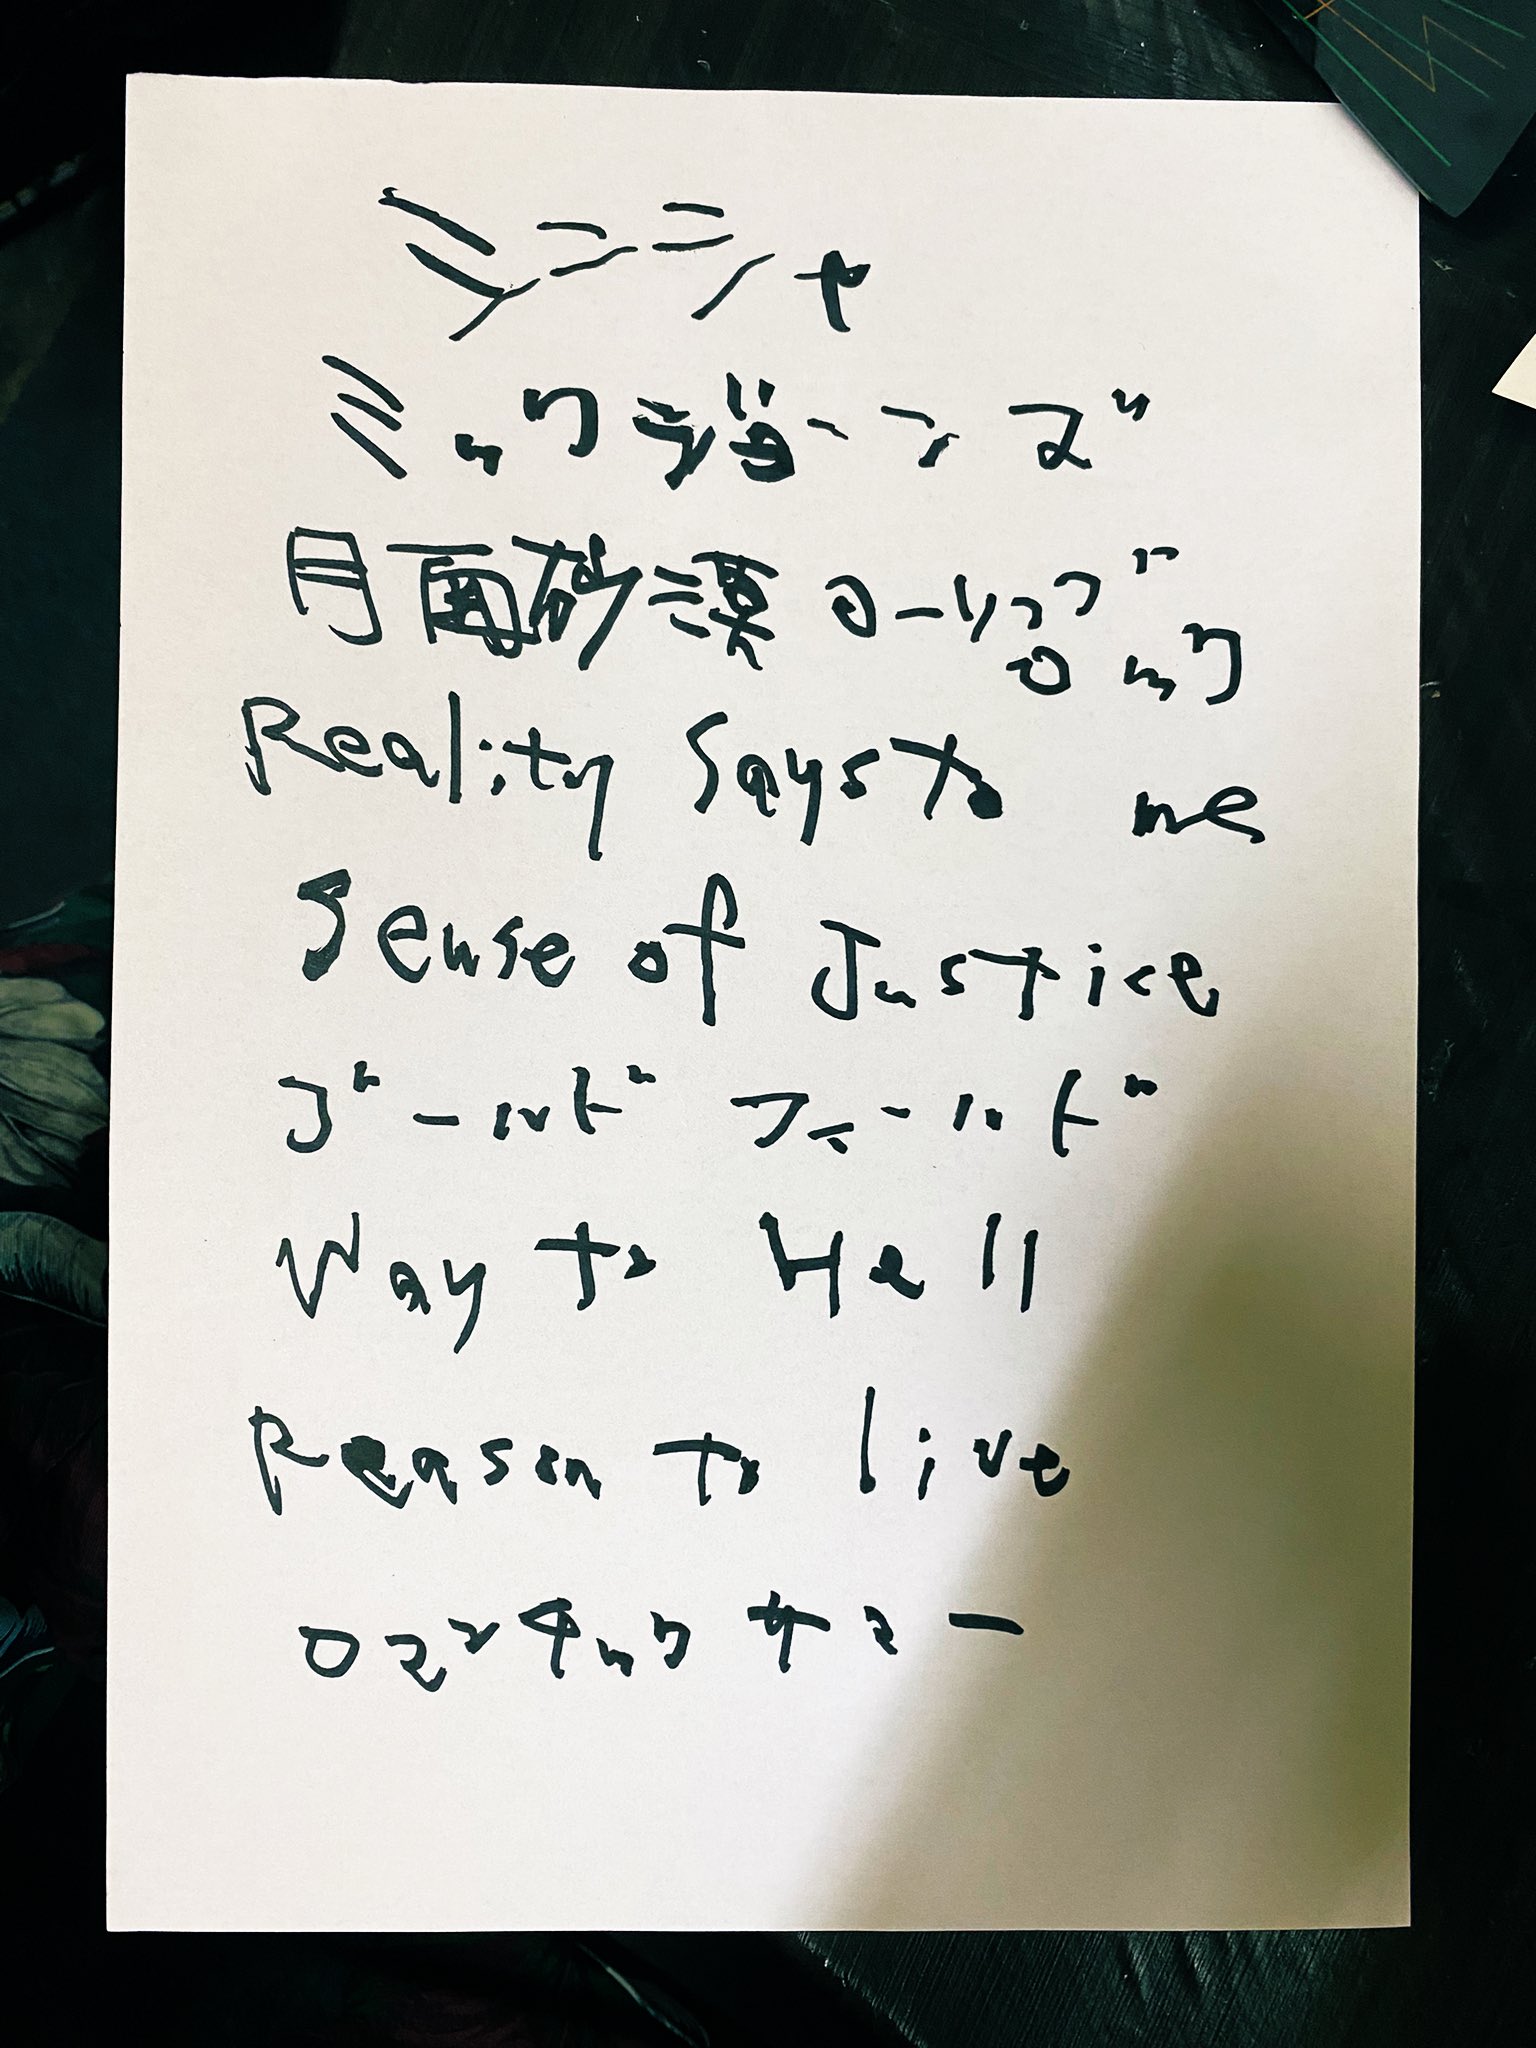 ミックジョーンズ
月面砂漠ローリングロック
Reality Says to me
Sense of Justice
ゴールドフィールド
Way to Hell
Reason to live
ロマンチックサマー